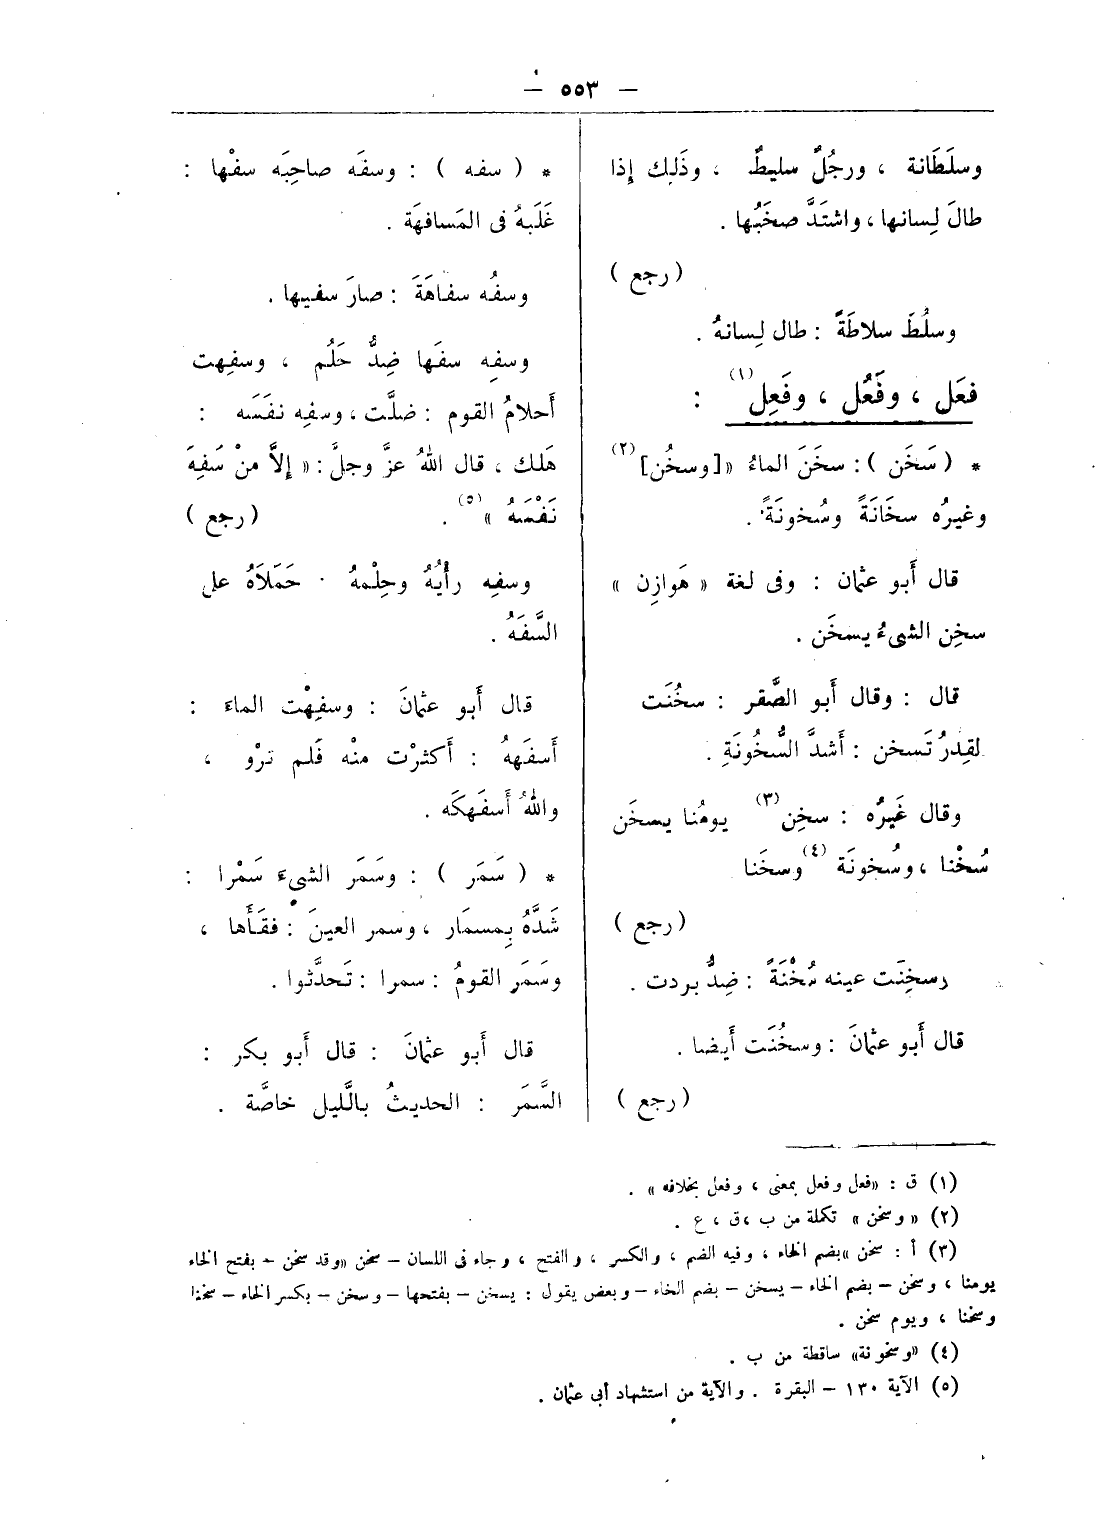 — ٥٥٣ —
وسلَطَانة ، ورجُلٌ سليطٌ ، وذَلِك إِذا
طالَ لِسانها ، واشتَدَّ صخَبُها .
( رجع )
وسلُطَ سلاطَةً : طال لِسانهُ .
فعَل ، وفَعُل ، وفَعِل (١) :
* ( سَخَن ) : سخَنَ الماءُ «[وسخُن] (٢)
وغيرُه سخَانَةً وسُخونَةً .
قال أَبو عثمان : وفى لغة « هَوازِن »
سخِن الشىءُ يسخَن .
قال : وقال أَبو الصَّقر : سخُنَت
لقِدرُ تَسخن : أَشدَّ السُّخُونَةِ .
وقال غَيرُه : سخِن (٣) يومُنا يسخَن
سُخْنا ، وسُخونَة (٤) وسخَنا
( رجع )
رسخِنَت عينه سُخْنَةً : ضِدُّ بردت .
قال أَبو عثمانَ : وسخُنَت أَيضا .
( رجع )
* ( سفه ) : وسفَه صاحِبَه سفْها :
غَلَبهُ فى المَسافهَة .
وسفُه سفاهَةَ : صارَ سفيها .
وسفِه سفَها ضِدُّ حَلُم ، وسفِهت
أَحلامُ القوم : ضلَّت ، وسفِه نفَسَه :
هَلك ، قال اللهُ عزَّ وجلَّ : « إِلاَّ منْ سَفِهَ
نَفْسَهُ » (٥) . ( رجع )
وسفِه رأْيُهُ وحِلْمهُ · حَمَلاَهُ على
السَّفَهُ .
قال أَبو عثمانَ : وسفِهْت الماء :
أَسفَههُ : أَكثرْت منْه فَلم ترْو ،
واللهُ أَسفَهكَه .
* ( سَمَر ) : وسَمَر الشىءَ سَمْرا :
شَدَّهُ بِمسمَار ، وسمر العينَ : فقَأَها ،
وسَمَر القومُ : سمرا : تَحدَّثوا .
قال أَبو عثمانَ : قال أَبو بكر :
السَّمَر : الحديثُ بالَّليل خاصَّة .
(١) ق : «فعل وفعل بمعنى ، وفعل بخلافه » .
(٢) « وسخن » تكملة من ب ،ق ، ع .
(٣) أ : سخن »بضم الخاء ، وفيه الضم ، والكسر ، والفتح ، وجاء فى اللسان – سخن «وقد سخن – بفتح الخاء
يومنا ، وسخن – بضم الخاء – يسخن – بضم الخاء – وبعض يقول : يسخن – بفتحها – وسخن – بكسر الخاء – سخنا
وسخنا ، ويوم سخن .
(٤) «وسخونة» ساقطة من ب .
(٥) الآية ١٣٠ – البقرة . والآية من استشهاد أبى عثمان .